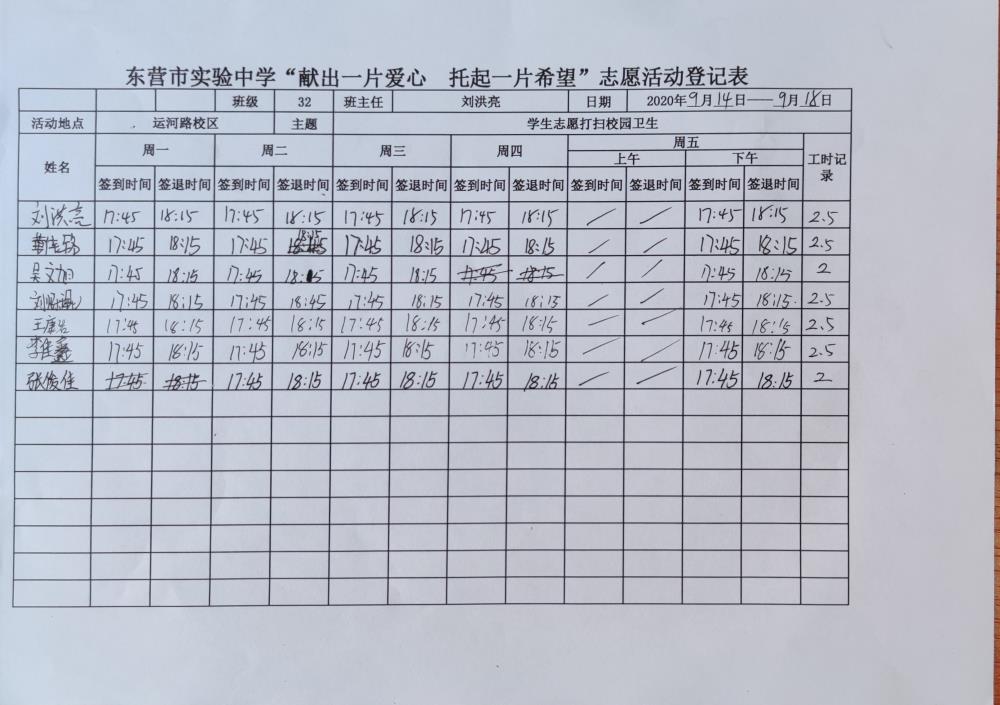 东营市实验中学“献出一片爱心 托起一片希望”志愿活动登记表
班级 32 班主任 刘洪亮 日期 2020年9月14日——9月18日
活动地点 运河路校区 主题 学生志愿打扫校园卫生
姓名 周一 周二 周三 周四 周五 工时记录
上午 下午
签到时间 签退时间 签到时间 签退时间 签到时间 签退时间 签到时间 签退时间 签到时间 签退时间 签到时间 签退时间
刘洪亮 17:45 18:15 17:45 18:15 17:45 18:15 17:45 18:15 / / 17:45 18:15 2.5
17:45 18:15 17:45 18:15 17:45 18:15 17:45 18:15 / / 17:45 18:15 2.5
吴文旭 17:45 18:15 17:45 18:15 17:45 18:15 17:45 18:15 / / 17:45 18:15 2
17:45 18:15 17:45 18:45 17:45 18:15 17:45 18:15 / / 17:45 18:15 2.5
王康 17:45 18:15 17:45 18:15 17:45 18:15 17:45 18:15 / / 17:45 18:15 2.5
李佳 17:45 18:15 17:45 18:15 17:45 18:15 17:45 18:15 / / 17:45 18:15 2.5
张俊佳 17:45 18:15 17:45 18:15 17:45 18:15 17:45 18:15 / / 17:45 18:15 2